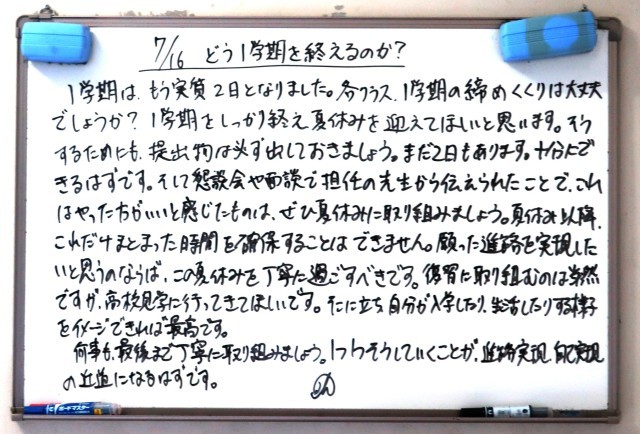 7/16 どう1学期を終えるのか?
1学期は、もう実質2日となりました。各クラス、1学期の締めくくりは大丈夫
でしょうか? 1学期をしっかり終え夏休みを迎えてほしいと思います。そう
するためにも、提出物は必ず出しておきましょう。まだ2日もあります。十分にで
きるはずです。そして懇談会や面談で担任の先生から伝えられたことで、これ
はやった方がいいと感じたものは、ぜひ夏休みに取り組みましょう。夏休み以降、
これだけまとまった時間を確保することはできません。願った進路を実現した
いと思うのならば、この夏休みを丁寧に過ごすべきです。復習に取り組むのは当然
ですが、高校見学に行ってきてほしいです。そこに立ち自分が入学したり、生活したりする様子
をイメージできれば最高です。
何事も、最後まで丁寧に取り組みましょう。1つ1つそうしていくことが、進路実現、自己実現
の近道になるはずです。
ボードマスター